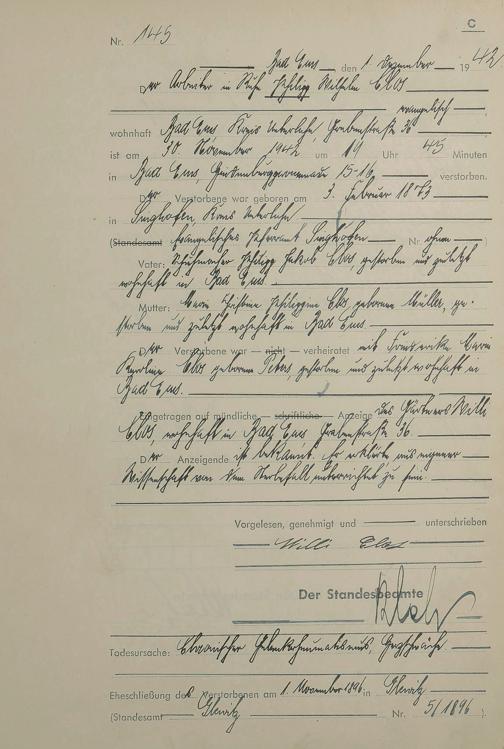 C
Nr. 145
Bad Ems, den 1. Dezember 1942
Der Arbeiter in Ruhe Philipp Wilhelm Clos
evangelisch
wohnhaft Bad Ems Kreis Unterlahn, Grabenstraße 36
ist am 30. November 1942 um 19 Uhr 45 Minuten
in Bad Ems, 15-16 verstorben.
Der Verstorbene war geboren am 3. Februar 1873
in Singhofen, Kreis Unterlahn
(Standesamt Evangelisches Pfarramt Singhofen Nr. ohne)
Vater: Schuhmacher Philipp Jakob Clos, gestorben und zuletzt
wohnhaft in Bad Ems
Mutter: Philippine Clos, geborene Müller, ge-
storben und zuletzt wohnhaft in Bad Ems
Der Verstorbene war nicht verheiratet mit
Karoline Clos geborene Peters, gestorben und zuletzt wohnhaft in
Bad Ems.
Eingetragen auf mündliche schriftliche Anzeige des Willi
Clos, wohnhaft in Bad Ems Grabenstraße 36.
Der Anzeigende ist bekannt. Er erklärte aus eigener
Wissenschaft von dem Sterbefall unterrichtet zu sein.
Vorgelesen, genehmigt und unterschrieben
Willi Clos
Der Standesbeamte
Todesursache: Chronischer Gelenkrheumatismus, Herzschwäche
Eheschließung des Verstorbenen am 1. November 1896 in Gleiwitz
(Standesamt Gleiwitz Nr. 5/1896)